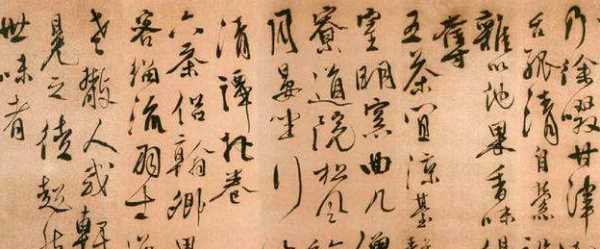 乃滌啜甘津
舌孤清自縈
雜以他果香味
奪
五茶宜涼臺靜
室明窗曲几僧
寮道院松風竹
月晏坐行
清譚把卷
六茶侶翰卿墨
客緇流羽士
老散人或軒
冕之徒超然
世味者